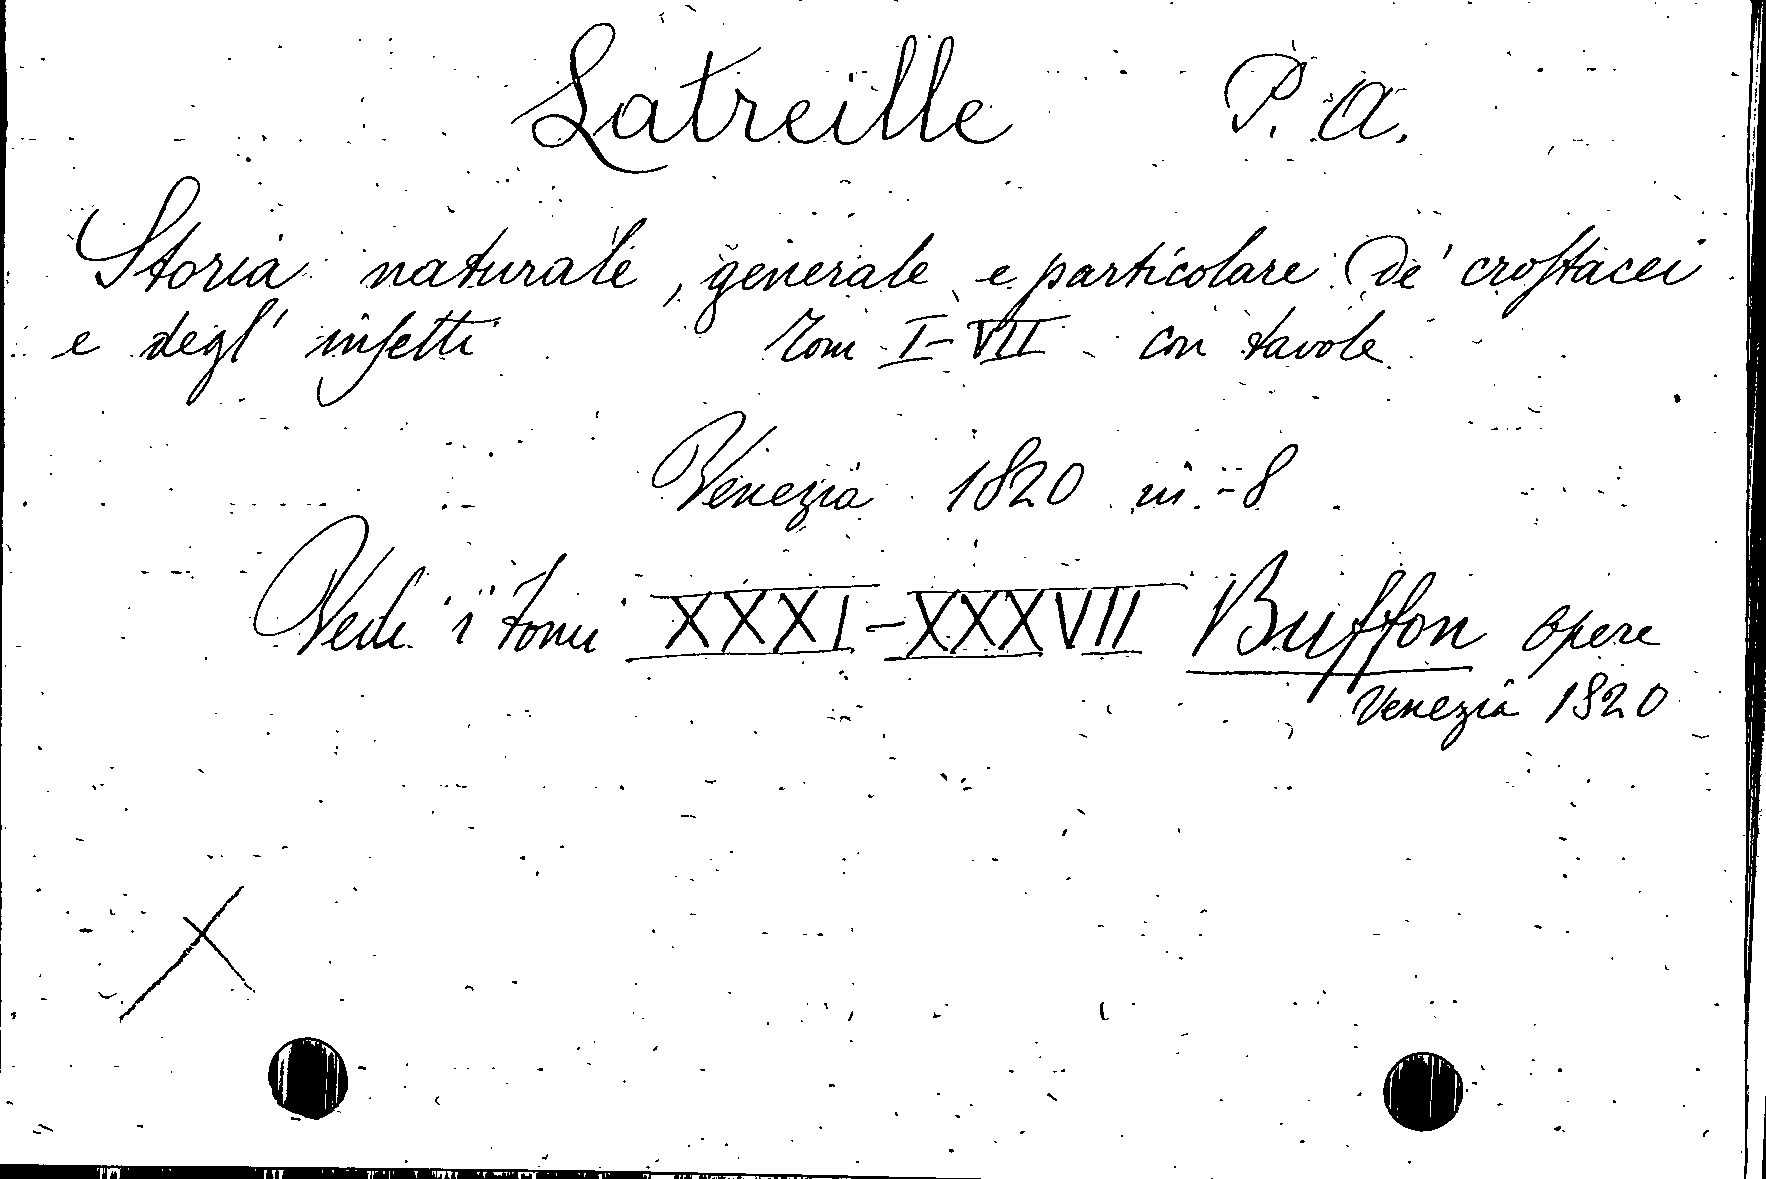 Latreille P. A.
Storia naturale, generale e particolare de' croſtacei
e degl' inſetti Tomi I-VII con tavole
Venezia 1820 in-8
Vedi i tomi XXXI-XXXVII Buffon opere
Venezia 1820